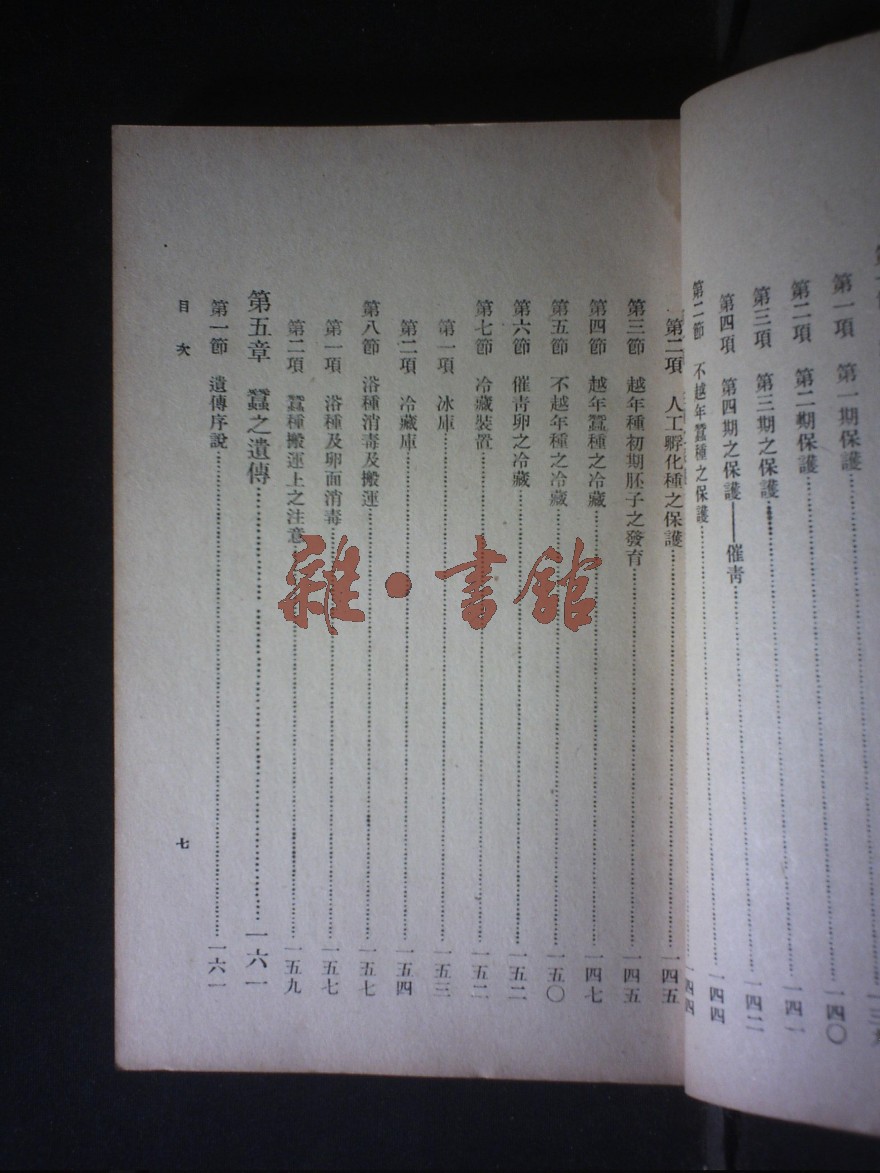 第一項　第一期保護…一四〇
第二項　第二期保護…一四一
第三項　第三期之保護…一四二
第四項　第四期之保護——催靑…一四四
第二節　不越年蠶種之保護…一四四
第二項　人工孵化種之保護…一四五
第三節　越年種初期胚子之發育…一四五
第四節　越年蠶種之冷藏…一四七
第五節　不越年種之冷藏…一五〇
第六節　催靑卵之冷藏…一五二
第七節　冷藏裝置…一五二
第一項　冰庫…一五三
第二項　冷藏庫…一五四
第八節　浴種消毒及搬運…一五七
第一項　浴種及卵面消毒…一五七
第二項　蠶種搬運上之注意…一五九
第五章　蠶之遺傳…一六一
第一節　遺傳序說…一六一
目次　七
雜·書館